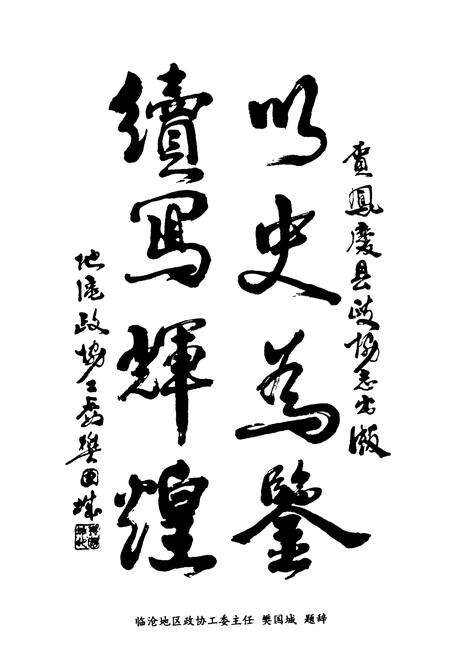 贺凤庆县政协志出版
以史为鉴
續寫輝煌
地区政协工委樊国城
临沧地区政协工委主任 樊国城 题辞